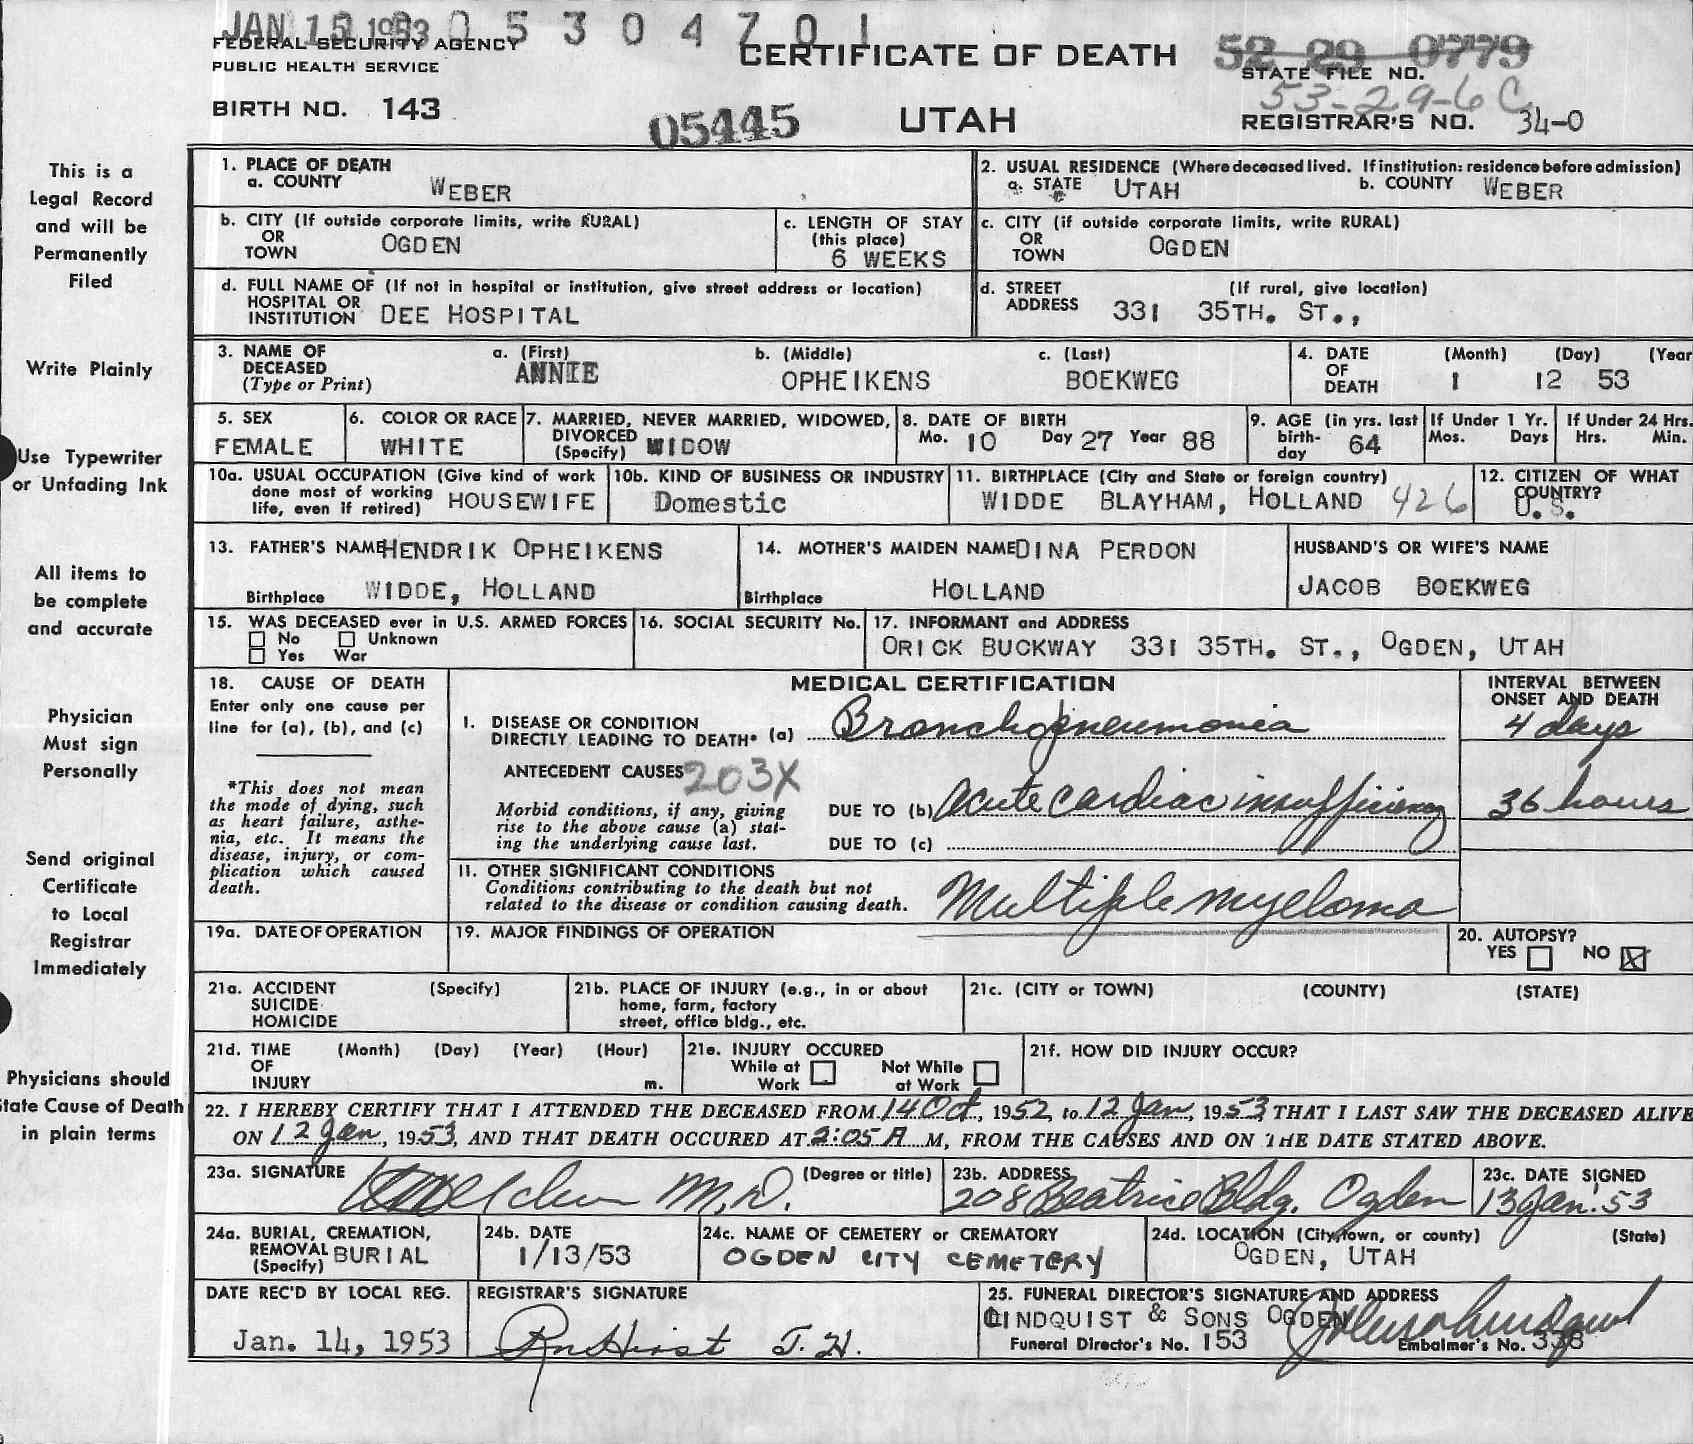 JAN 15 1953 0 5 3 0 4 7 0 1
FEDERAL SECURITY AGENCY
PUBLIC HEALTH SERVICE
CERTIFICATE OF DEATH
52 29 0779
STATE FILE NO.
53-29-6C
BIRTH NO. 143
05445
UTAH
REGISTRAR'S NO. 34-0
This is a
Legal Record
and will be
Permanently
Filed
Write Plainly
Use Typewriter
or Unfading Ink
All items to
be complete
and accurate
Physician
Must sign
Personally
Send original
Certificate
to Local
Registrar
Immediately
Physicians should
tate Cause of Death
in plain terms
1. PLACE OF DEATH
a. COUNTY WEBER
2. USUAL RESIDENCE (Where deceased lived. If institution: residence before admission)
a. STATE UTAH b. COUNTY WEBER
b. CITY (If outside corporate limits, write RURAL)
OR
TOWN OGDEN
c. LENGTH OF STAY
(this place)
6 WEEKS
c. CITY (if outside corporate limits, write RURAL)
OR
TOWN OGDEN
d. FULL NAME OF (If not in hospital or institution, give street address or location)
HOSPITAL OR
INSTITUTION DEE HOSPITAL
d. STREET (If rural, give location)
ADDRESS 331 35TH. ST.,
3. NAME OF
DECEASED
(Type or Print)
a. (First)
ANNIE
b. (Middle)
OPHEIKENS
c. (Last)
BOEKWEG
4. DATE
OF
DEATH
(Month) (Day) (Year
1 12 53
5. SEX
FEMALE
6. COLOR OR RACE
WHITE
7. MARRIED, NEVER MARRIED, WIDOWED,
DIVORCED
(Specify) WIDOW
8. DATE OF BIRTH
Mo. 10 Day 27 Year 88
9. AGE (in yrs. last
birth-
day 64
If Under 1 Yr.
Mos. Days
If Under 24 Hrs.
Hrs. Min.
10a. USUAL OCCUPATION (Give kind of work
done most of working
life, even if retired) HOUSEWIFE
10b. KIND OF BUSINESS OR INDUSTRY
Domestic
11. BIRTHPLACE (City and State or foreign country)
WIDDE BLAYHAM, HOLLAND 426
12. CITIZEN OF WHAT
COUNTRY?
U.S.
13. FATHER'S NAME HENDRIK OPHEIKENS
Birthplace WIDDE, HOLLAND
14. MOTHER'S MAIDEN NAME DINA PERDON
Birthplace HOLLAND
HUSBAND'S OR WIFE'S NAME
JACOB BOEKWEG
15. WAS DECEASED ever in U.S. ARMED FORCES
No Unknown
Yes War
16. SOCIAL SECURITY No.
17. INFORMANT and ADDRESS
ORICK BUCKWAY 331 35TH. ST., OGDEN, UTAH
18. CAUSE OF DEATH
Enter only one cause per
line for (a), (b), and (c)
*This does not mean
the mode of dying, such
as heart failure, asthe-
nia, etc. It means the
disease, injury, or com-
plication which caused
death.
MEDICAL CERTIFICATION
INTERVAL BETWEEN
ONSET AND DEATH
I. DISEASE OR CONDITION
DIRECTLY LEADING TO DEATH* (a) Bronchopneumonia 4 days
ANTECEDENT CAUSES 203X
Morbid conditions, if any, giving
rise to the above cause (a) stat-
ing the underlying cause last.
DUE TO (b) Acute cardiac insufficiency 36 hours
DUE TO (c)
11. OTHER SIGNIFICANT CONDITIONS
Conditions contributing to the death but not
related to the disease or condition causing death.
Multiple myeloma
19a. DATE OF OPERATION
19. MAJOR FINDINGS OF OPERATION
20. AUTOPSY?
YES NO X
21a. ACCIDENT (Specify)
SUICIDE
HOMICIDE
21b. PLACE OF INJURY (e.g., in or about
home, farm, factory
street, office bldg., etc.
21c. (CITY or TOWN) (COUNTY) (STATE)
21d. TIME (Month) (Day) (Year) (Hour)
OF
INJURY m.
21e. INJURY OCCURED
While at Not While
Work at Work
21f. HOW DID INJURY OCCUR?
22. I HEREBY CERTIFY THAT I ATTENDED THE DECEASED FROM 14 Oct, 1952, to 12 Jan, 1953, THAT I LAST SAW THE DECEASED ALIVE
ON 12 Jan, 1953, AND THAT DEATH OCCURED AT 2:05 A M, FROM THE CAUSES AND ON THE DATE STATED ABOVE.
23a. SIGNATURE (Degree or title)
M.D.
23b. ADDRESS
208 Beatrice Bldg. Ogden
23c. DATE SIGNED
13 Jan. '53
24a. BURIAL, CREMATION,
REMOVAL
(Specify) BURIAL
24b. DATE
1/13/53
24c. NAME OF CEMETERY or CREMATORY
OGDEN CITY CEMETERY
24d. LOCATION (City, town, or county) (State)
OGDEN, UTAH
DATE REC'D BY LOCAL REG.
Jan. 14, 1953
REGISTRAR'S SIGNATURE
25. FUNERAL DIRECTOR'S SIGNATURE AND ADDRESS
LINDQUIST & SONS OGDEN
Funeral Director's No. 153
Embalmer's No. 338